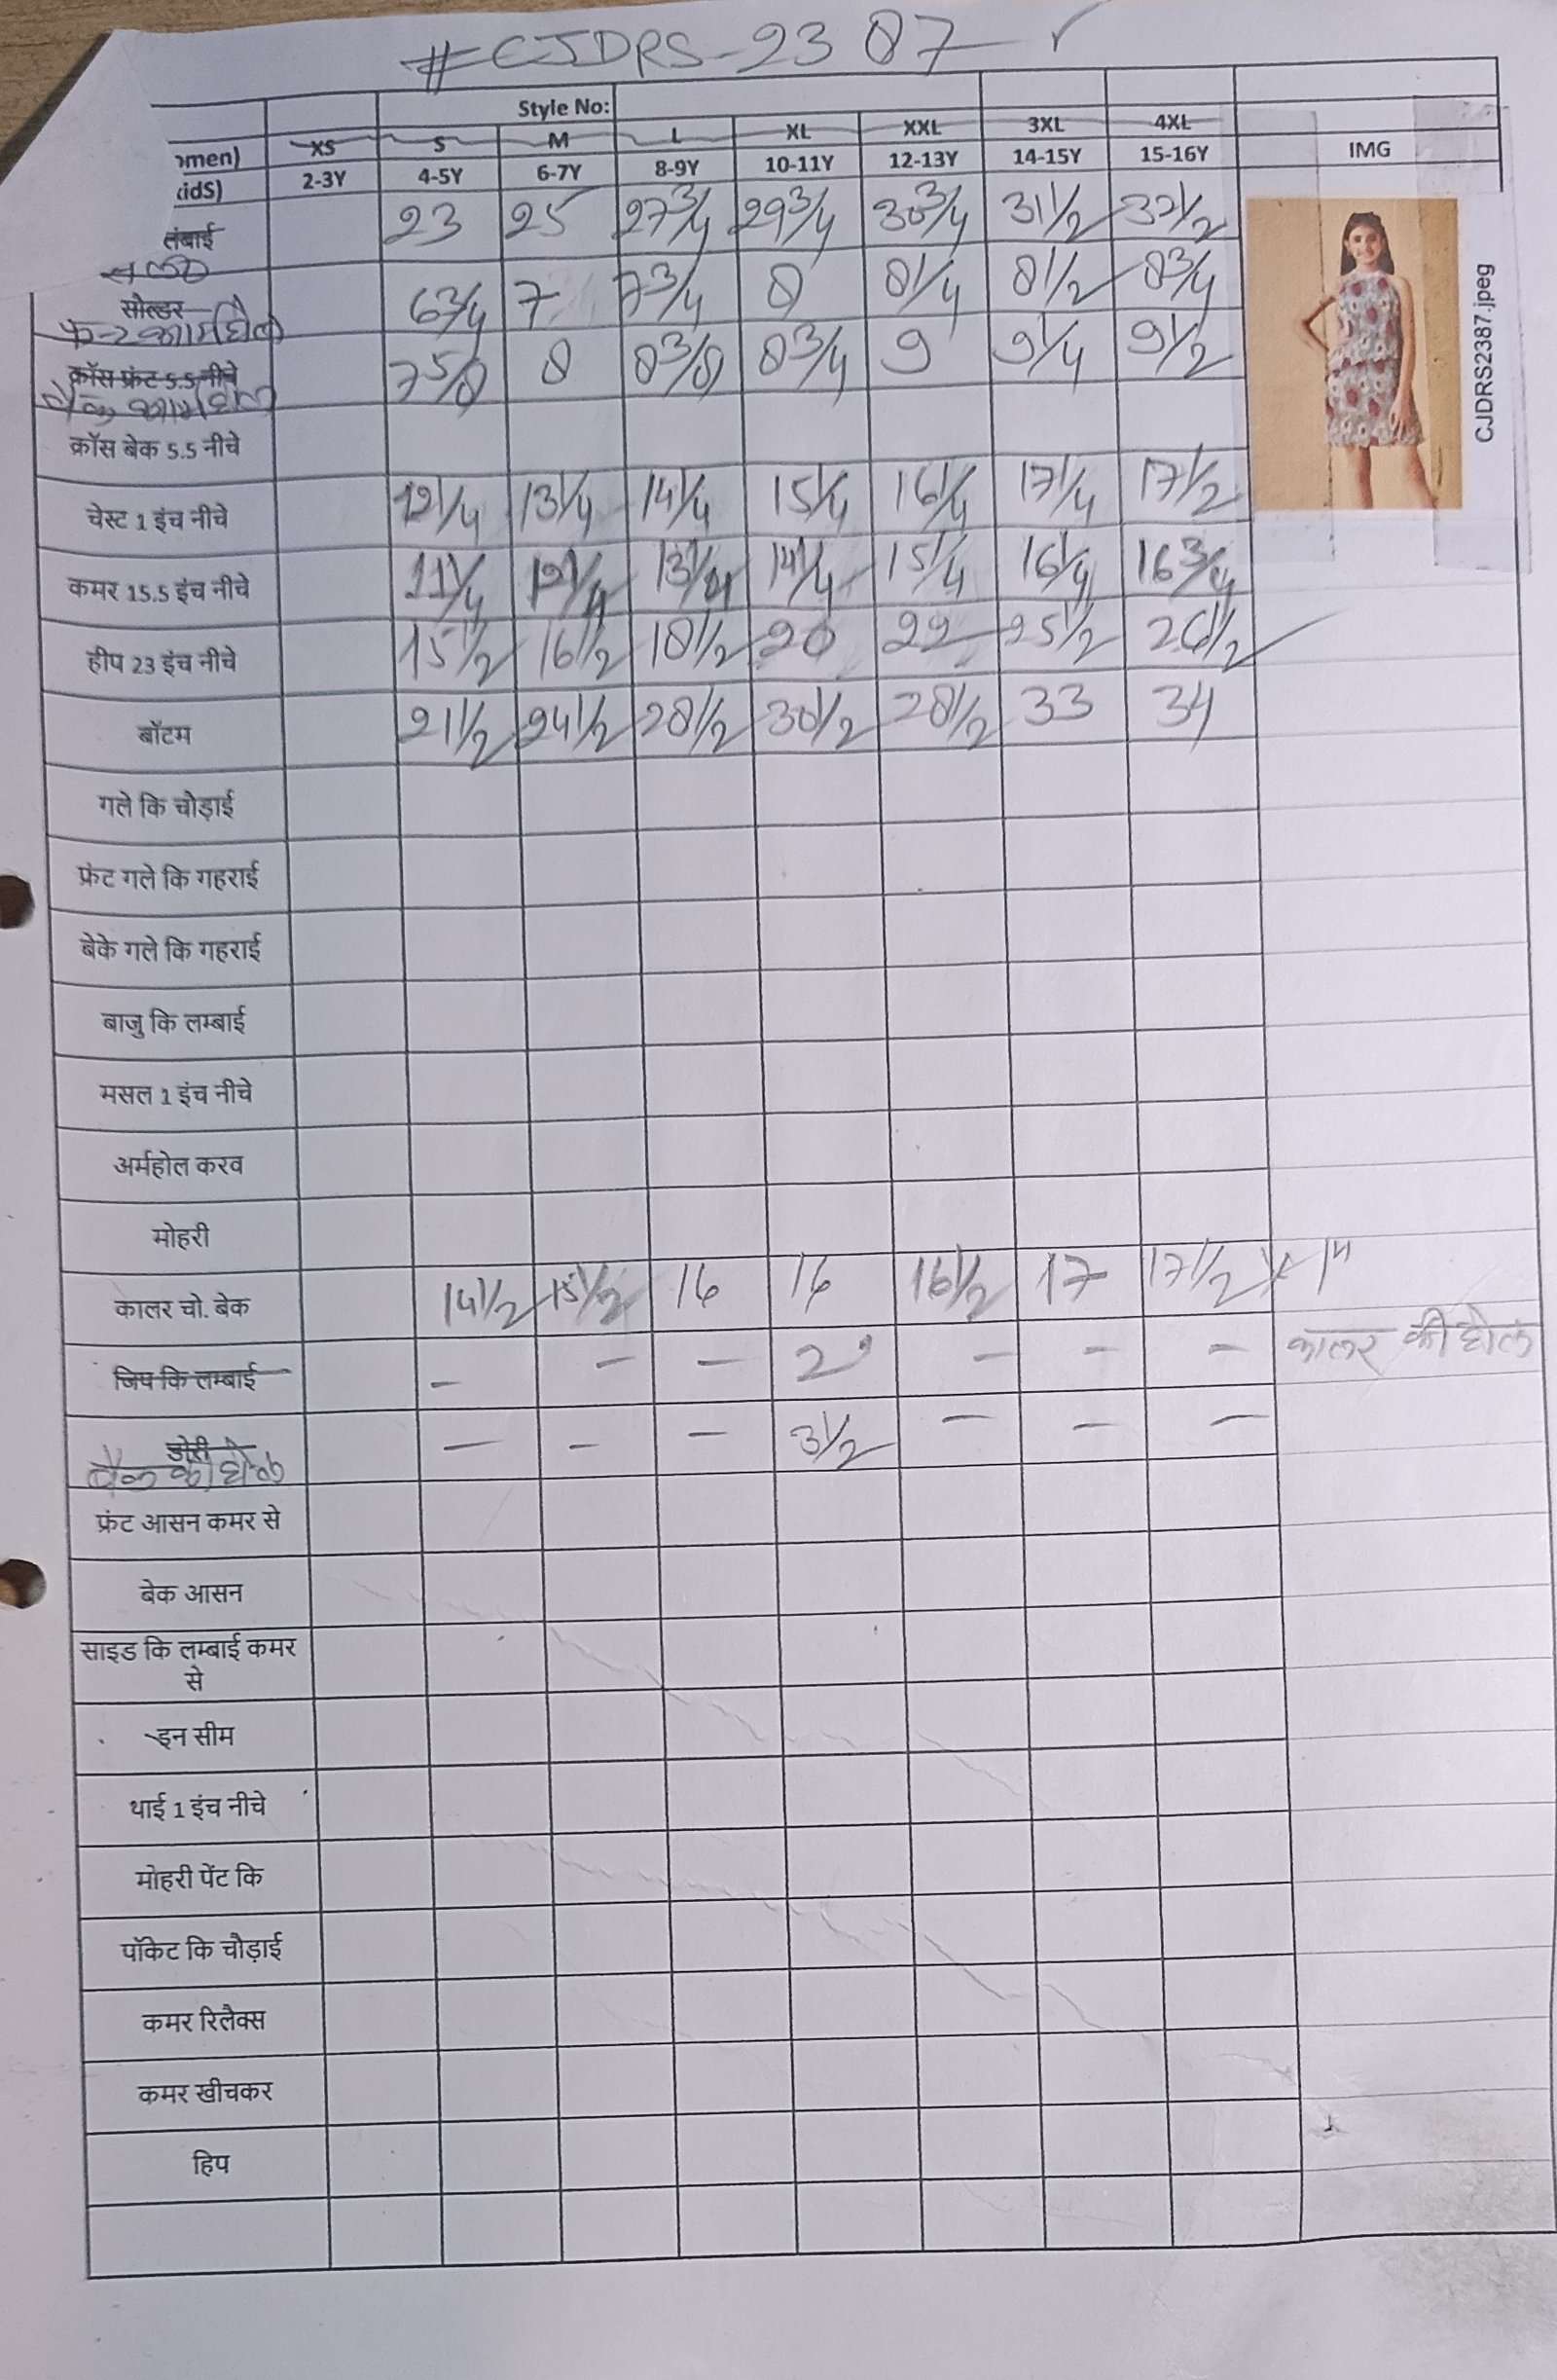 #CJDRS-2387
Style No:
omen) XS S M L XL XXL 3XL 4XL
kidS) 2-3Y 4-5Y 6-7Y 8-9Y 10-11Y 12-13Y 14-15Y 15-16Y IMG
लंबाई 23 25 27 3/4 29 3/4 30 3/4 31 1/2 32 1/2
सोल्डर 6 3/4 7 7 3/4 8 8 1/4 8 1/2 8 3/4
फ्रन्ट आर्महोल
क्रॉस फ्रंट 5.5 नीचे 7 5/8 8 8 3/8 8 3/4 9 9 1/4 9 1/2
बैक आर्महोल
CJDRS2387.jpeg
क्रॉस बेक 5.5 नीचे
चेस्ट 1 इंच नीचे 12 1/4 13 1/4 14 1/4 15 1/4 16 1/4 17 1/4 17 1/2
कमर 15.5 इंच नीचे 11 1/4 12 1/4 13 1/4 14 1/4 15 1/4 16 1/4 16 3/4
हीप 23 इंच नीचे 15 1/2 16 1/2 18 1/2 20 22 25 1/2 26 1/2
बॉटम 21 1/2 24 1/2 28 1/2 30 1/2 28 1/2 33 34
गले कि चोड़ाई
फ्रंट गले कि गहराई
बेके गले कि गहराई
बाजु कि लम्बाई
मसल 1 इंच नीचे
अर्महोल करव
मोहरी
कालर चो. बेक 14 1/2 15 1/2 16 16 16 1/2 17 17 1/2 x 1"
जिप कि लम्बाई - - - 2" - - - कालर की होल
डोरी - - - 3 1/2 - - -
बैक की होल
फ्रंट आसन कमर से
बेक आसन
साइड कि लम्बाई कमर
से
इन सीम
थाई 1 इंच नीचे
मोहरी पेंट कि
पॉकेट कि चौड़ाई
कमर रिलैक्स
कमर खीचकर
हिप